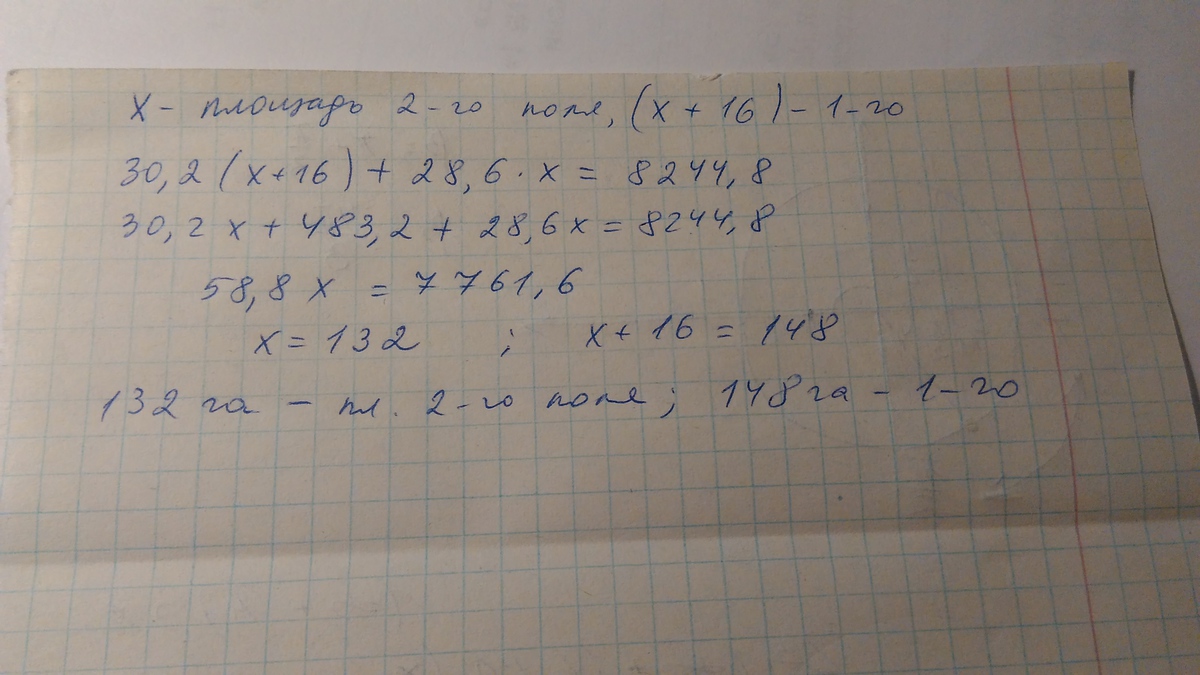 х - площадь 2-го поля, (х + 16) - 1-го
30,2 (х+16) + 28,6 · х = 8244,8
30,2 х + 483,2 + 28,6 х = 8244,8
58,8 х = 7761,6
х = 132 ; х + 16 = 148
132 га - пл. 2-го поля; 148 га - 1-го